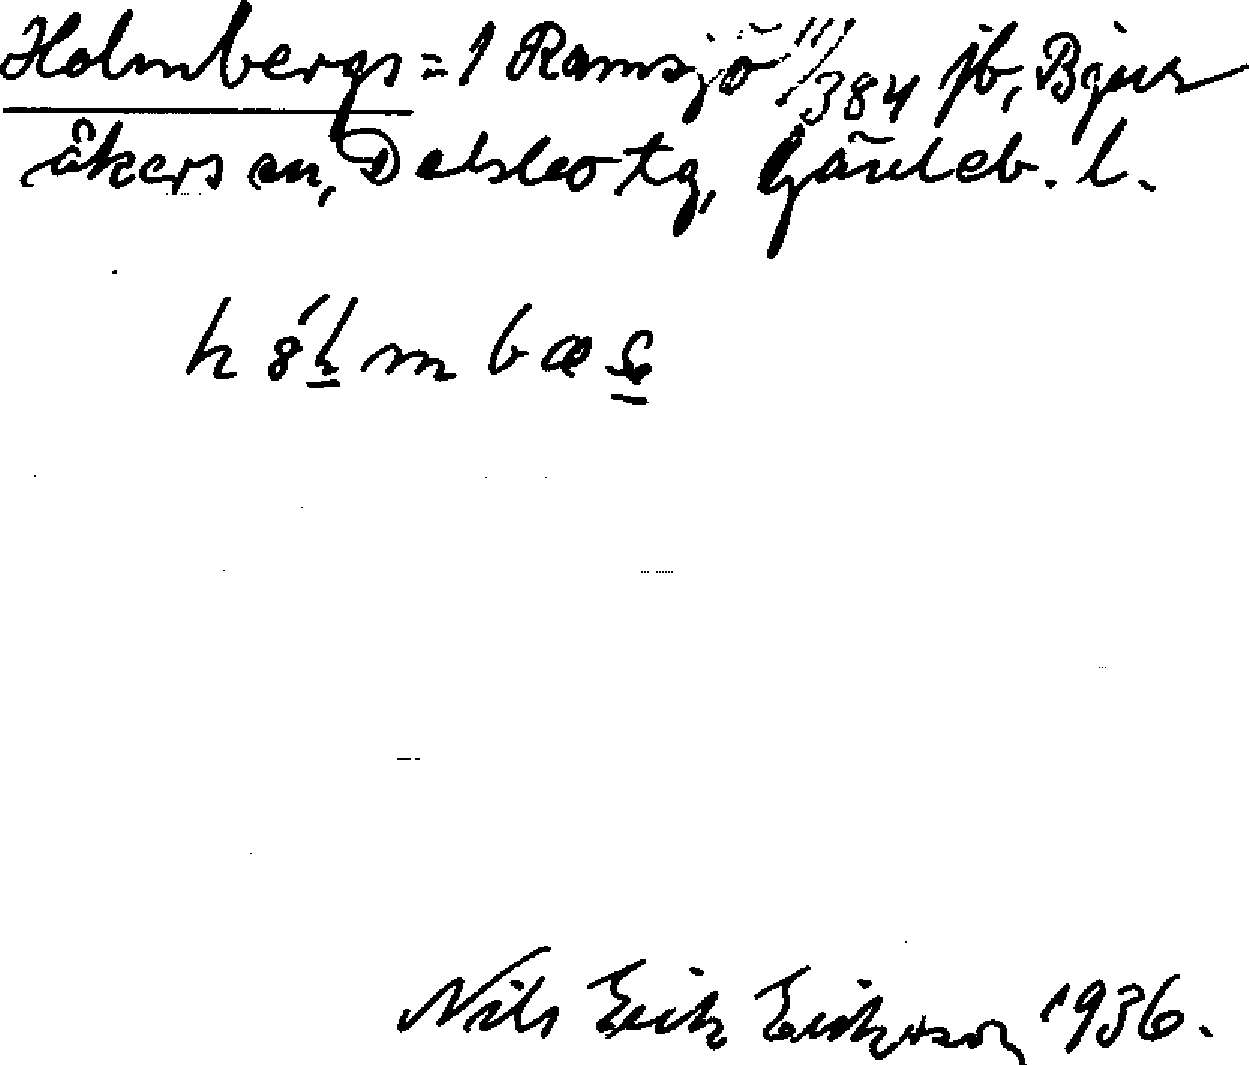 Holmbergs = 1 Ramsjö 11/384 jb, Bjur
åkers sn, Delsbo tg, Gävleb. l.
Nils Erik Eriksson 1936.